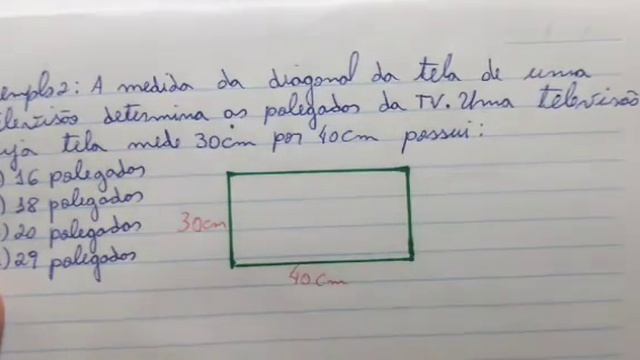 emplo 2: A medida da diagonal da tela de uma
levisão determina as polegadas da TV. Uma televisão
uja tela mede 30cm por 40cm possui:
) 16 polegadas
) 18 polegadas
) 20 polegadas
) 29 polegadas
30cm
40cm